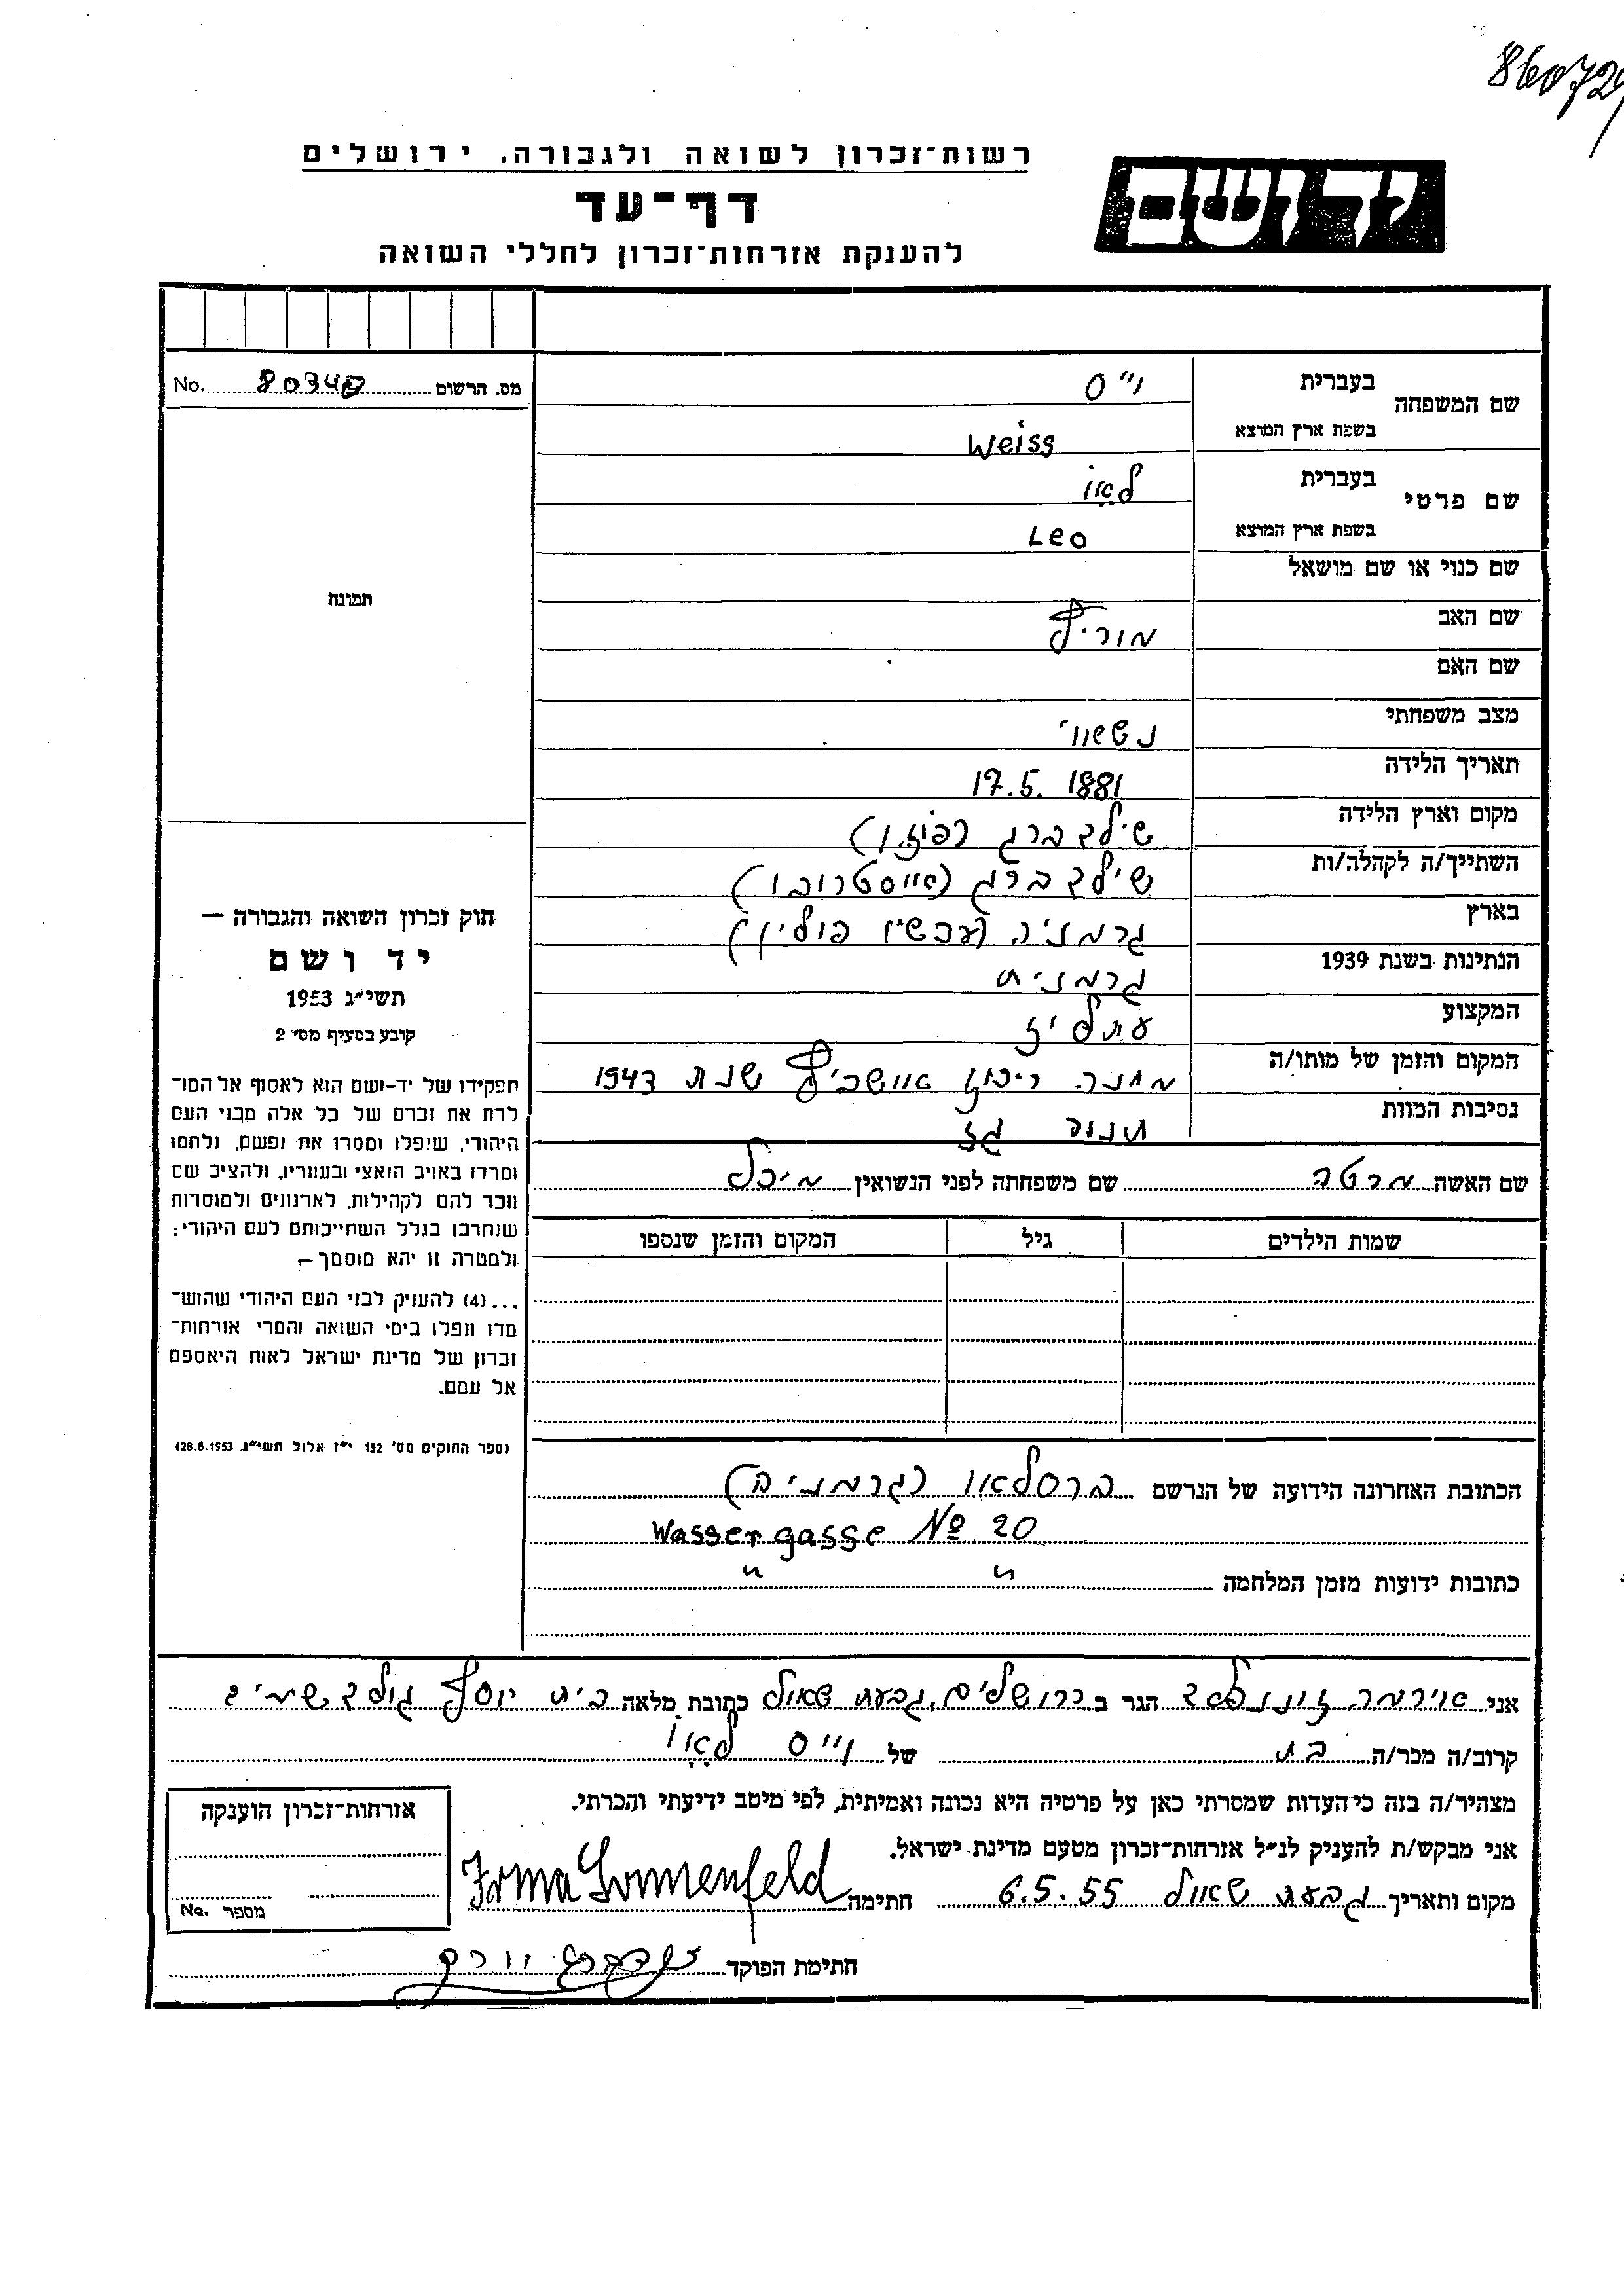 860729
רשות־זכרון לשואה ולגבורה, ירושלים
יד ושם
דף־עד
להענקת אזרחות־זכרון לחללי השואה
מס. הרשום No. 80340
תמונה
חוק זכרון השואה והגבורה —
יד ושם
תשי״ג 1953
קובע בסעיף מס׳ 2
תפקידו של יד-ושם הוא לאסוף אל המו־
לדת את זכרם של כל אלה מבני העם
היהודי, שנפלו ומסרו את נפשם, נלחמו
ומרדו באויב הנאצי ובעוזריו, ולהציב שם
וזכר להם לקהילות, לארגונים ולמוסדות
שנחרבו בגלל השתייכותם לעם היהודי;
ולמטרה זו יהא מוסמך —
...(4) להעניק לבני העם היהודי שהוש־
מדו ונפלו בימי השואה והמרי אזרחות־
זכרון של מדינת ישראל לאות היאספם
אל עמם.
(ספר החוקים מס׳ 132 י״ז אלול תשי״ג 28.8.1953)
שם המשפחה בעברית וייס
בשפת ארץ המוצא Weiss
שם פרטי בעברית לאו
בשפת ארץ המוצא Leo
שם כנוי או שם מושאל
שם האב מוריץ
שם האם
מצב משפחתי נשאוי
תאריך הלידה 17.5.1881
מקום וארץ הלידה שילדברג (פוזן)
השתייך/ה לקהלה/ות שילדברג (אוסטרובו)
בארץ גרמניה (עכשיו פולין)
הנתינות בשנת 1939 גרמנית
המקצוע
המקום והזמן של מותו/ה מחנה ריכוז אושביץ שנת 1943
נסיבות המוות תנור גז
שם האשה מרטה שם משפחתה לפני הנשואין מיכל
שמות הילדים גיל המקום והזמן שנספו
הכתובת האחרונה הידועה של הנרשם ברסלאו (גרמניה)
Wassergasse № 20
כתובות ידועות מזמן המלחמה " "
אני אירמה זוננפלד הגר בירושלים, גבעת שאול כתובת מלאה בית יוסף גולדשמיד
קרוב/ה מכר/ה בת של וייס לאו
מצהיר/ה בזה כי העדות שמסרתי כאן על פרטיה היא נכונה ואמיתית, לפי מיטב ידיעתי והכרתי.
אני מבקש/ת להעניק לנ״ל אזרחות־זכרון מטעם מדינת ישראל.
מקום ותאריך גבעת שאול 6.5.55 חתימה Irma Sonnenfeld
חתימת הפוקד
אזרחות־זכרון הוענקה
מספר No.